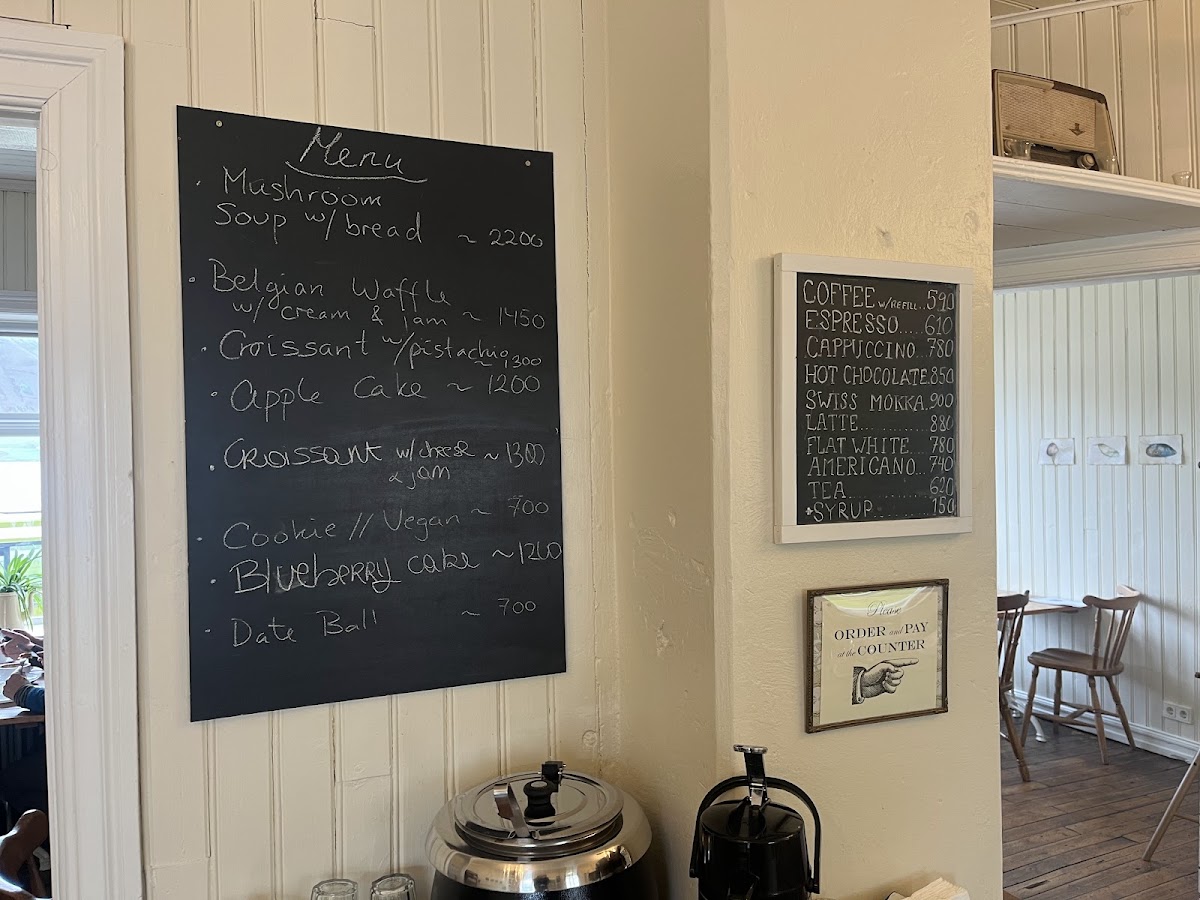 Menu
· Mushroom
Soup w/ bread ~ 2200
· Belgian Waffle
w/ cream & jam ~ 1450
· Croissant w/pistachio
~ 1300
· Apple Cake ~ 1200
· CROISSANT w/cheese ~ 1300
& jam
· Cookie // Vegan ~ 700
· BLueBERRY cake ~ 1200
· Date Ball ~ 700
COFFEE w/REFILL.. 590
ESPRESSO..... 610
CAPPUCCINO.. 780
HOT CHOCOLATE. 850
SWISS MOKKA. 900
LATTE........... 880
FLAT WHITE... 780
AMERICANO.. 740
TEA............ 620
+SYRUP....... 150
Please
ORDER and PAY
at the COUNTER